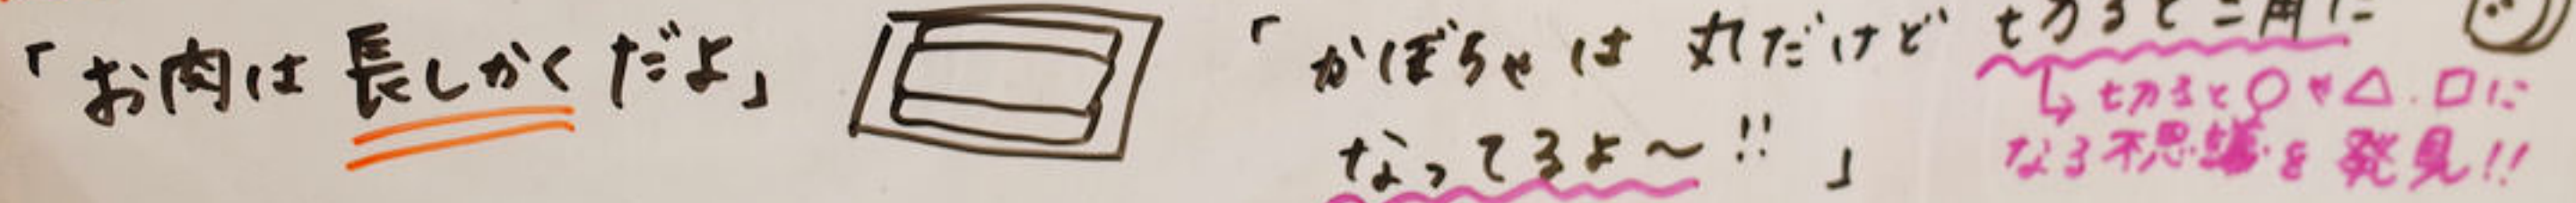 「お肉は 長しかく だよ」
「かぼちゃは 丸だけど 切ると三角に
なってるよ〜!!」
↳切ると○や△.□に
なる不思議を発見!!